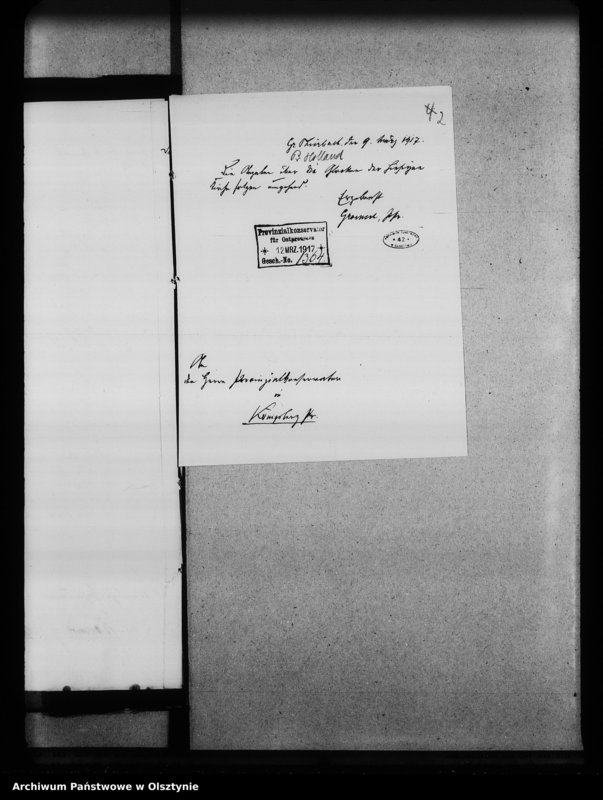 42
Gr. Thierbach den 9. März 1917.
Pr Holland
Die Angaben über die Glocken der hiesigen
Kirche folgen umgehend.
Ergebenst
Pfr.
Provinzialkonservator
für Ostpreussen
12 MRZ. 1917
Gesch.-No. 1304
42
An
den Herrn Provinzialkonservator
in
Königsberg Pr.
Archiwum Państwowe w Olsztynie